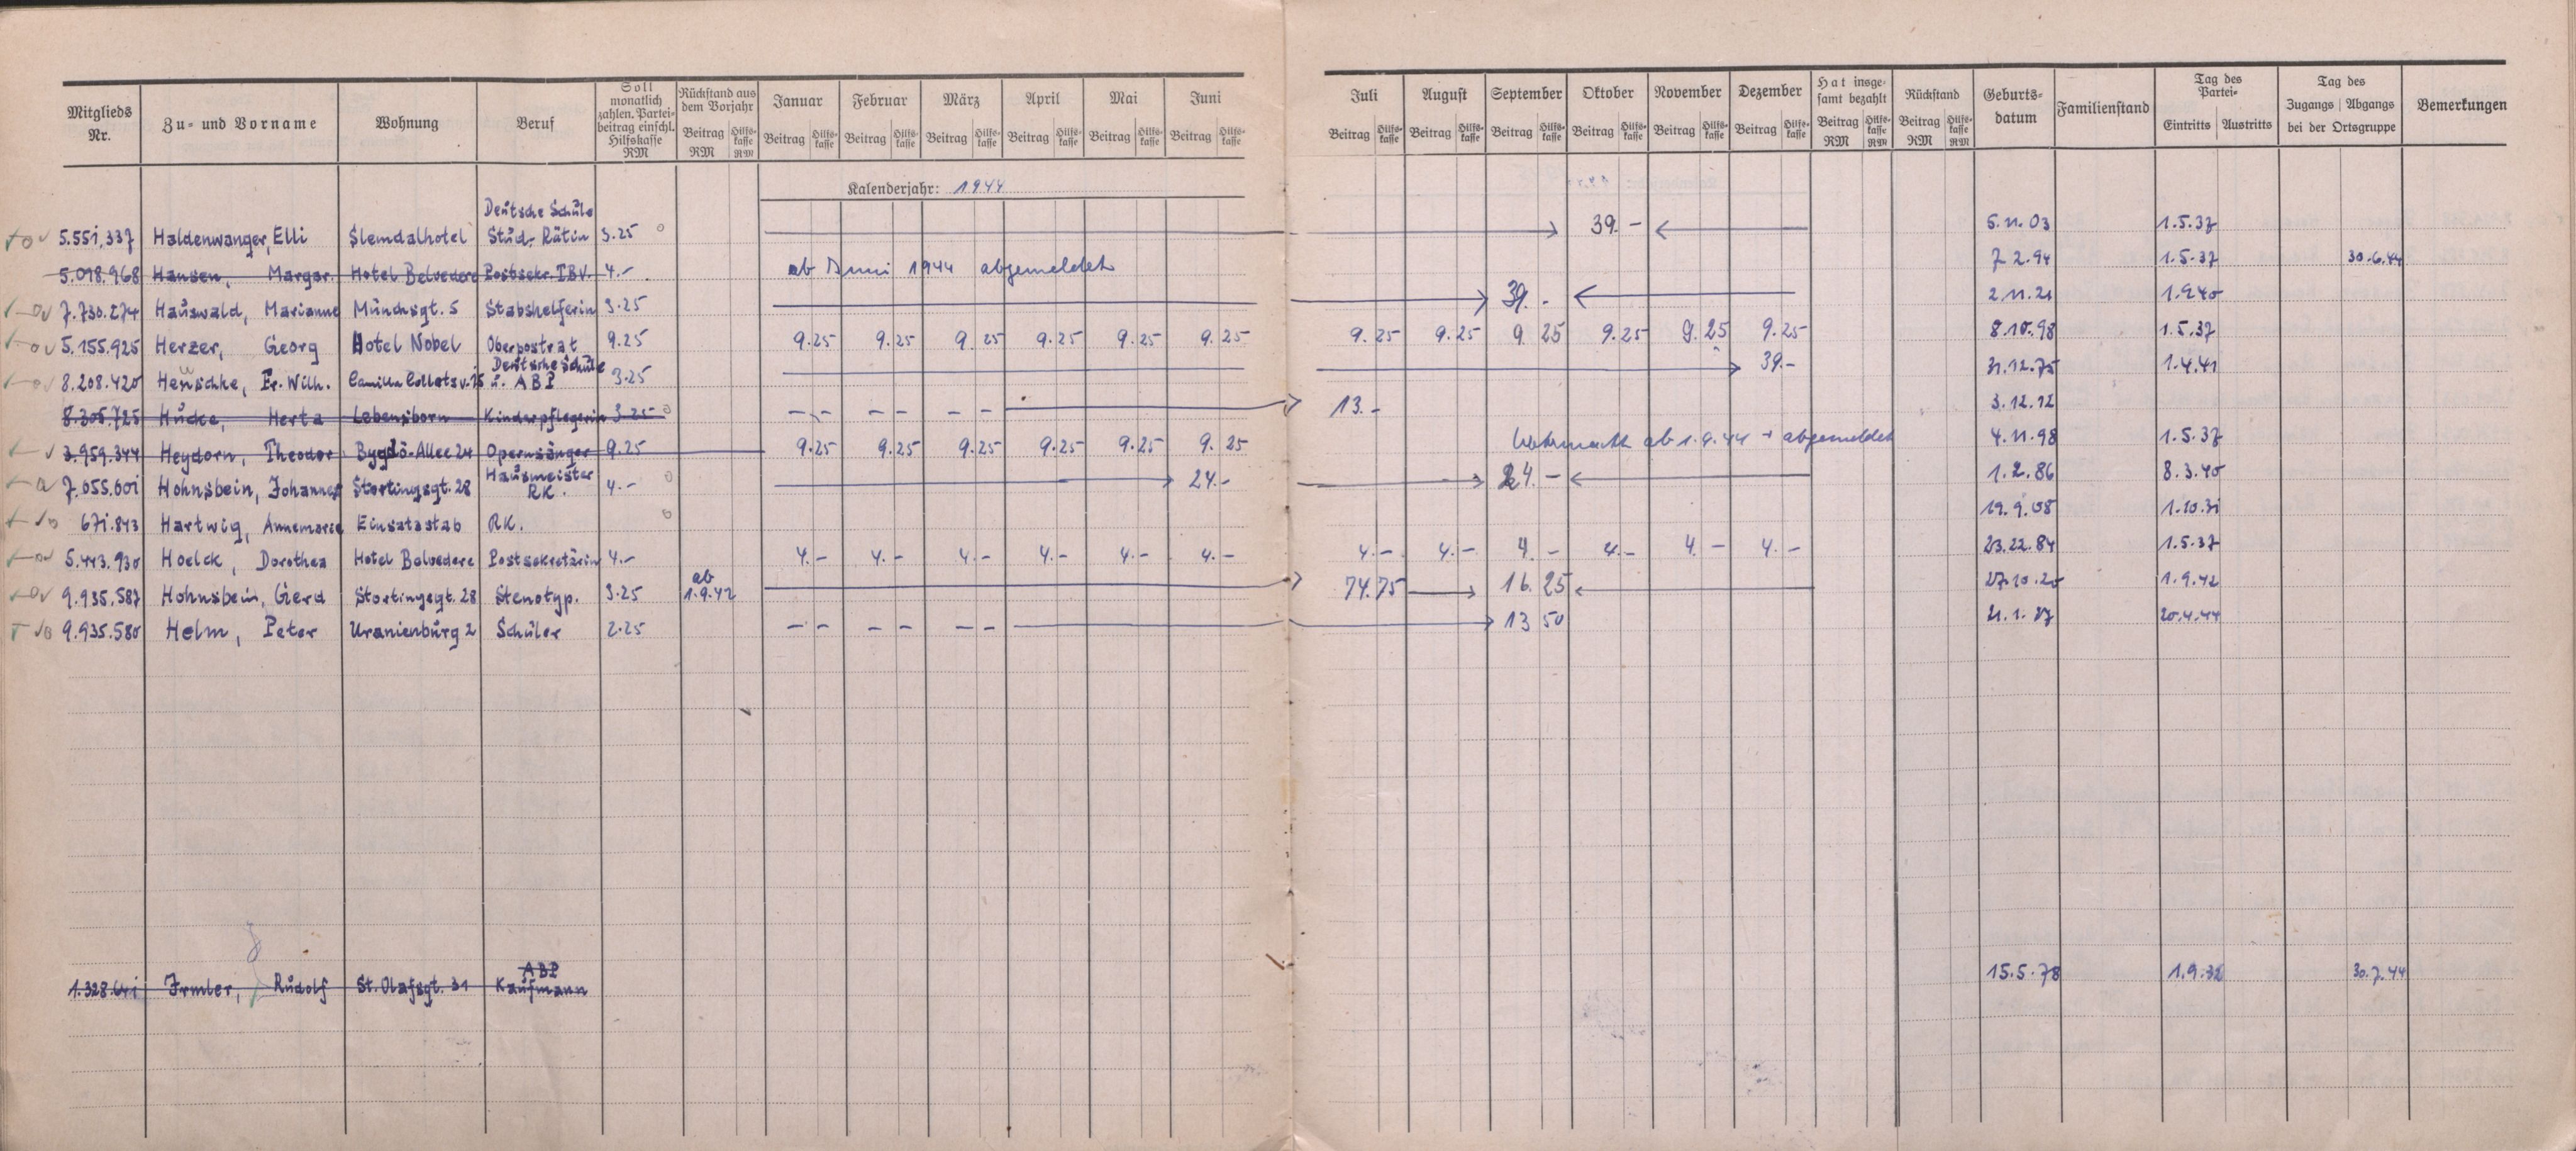 Mitglieds Nr. | Zu- und Vorname | Wohnung | Beruf | Soll monatlich zahlen. Parteibeitrag einschl. Hilfskasse RM | Rückstand aus dem Vorjahr Beitrag RM Hilfskasse RM | Januar Beitrag Hilfskasse | Februar Beitrag Hilfskasse | März Beitrag Hilfskasse | April Beitrag Hilfskasse | Mai Beitrag Hilfskasse | Juni Beitrag Hilfskasse | Juli Beitrag Hilfskasse | August Beitrag Hilfskasse | September Beitrag Hilfskasse | Oktober Beitrag Hilfskasse | November Beitrag Hilfskasse | Dezember Beitrag Hilfskasse | Hat insgesamt bezahlt Beitrag RM Hilfskasse RM | Rückstand Beitrag RM Hilfskasse RM | Geburtsdatum | Familienstand | Tag des Partei- Eintritts Austritts | Tag des Zugangs Abgangs bei der Ortsgruppe | Bemerkungen
Kalenderjahr: 1944
5.551.337 Haldenwanger, Elli Slemdalhotel Deutsche Schule Stud. Rätin 3.25 39.- 5.11.03 1.5.37
5.018.968 Hansen, Margar. Hotel Belvedere Postsekr. TBV. 4.- ab Juni 1944 abgemeldet 7.2.94 1.5.37 30.6.44
7.730.274 Hauswald, Marianne Munchsgt. 5 Stabshelferin 3.25 39.- 2.11.21 1.9.40
5.155.925 Herzer, Georg Hotel Nobel Oberpostrat 9.25 9.25 9.25 9.25 9.25 9.25 9.25 9.25 9.25 9.25 9.25 9.25 9.25 8.10.98 1.5.37
8.208.420 Henschke, Fr. Wilh. Camilla Colletsv. 15 Deutsche Schule u. ABP 3.25 39.- 31.12.75 1.4.41
8.306.725 Hucke, Herta Lebensborn Kinderpflegerin 3.25 - - - - - - 13.- 3.12.12
3.959.344 Heydorn, Theodor Bygdö-Allee 24 Opernsänger 9.25 9.25 9.25 9.25 9.25 9.25 9.25 Wehrmacht ab 1.9.44 abgemeldet 4.11.98 1.5.37
7.055.601 Hohnsbein, Johannes Stortingsgt. 28 Hausmeister RK. 4.- 24.- 24.- 1.2.86 8.3.40
671.843 Hartwig, Annemarie Einsatzstab RK. 19.9.08 1.10.31
5.443.930 Hoelck, Dorothea Hotel Belvedere Postsekretärin 4.- 4.- 4.- 4.- 4.- 4.- 4.- 4.- 4.- 4.- 4.- 4.- 4.- 23.22.84 1.5.37
9.935.587 Hohnsbein, Gerd Stortingsgt. 28 Stenotyp. 3.25 ab 1.9.42 74.75 16.25 27.10.20 1.9.42
9.935.580 Helm, Peter Uranienburg 2 Schüler 2.25 - - - - - - 13 50 21.1.27 20.4.44
1.328.641 Irmler, Rudolf St. Olafsgt. 31 ABP Kaufmann 15.5.78 1.9.32 30.7.44